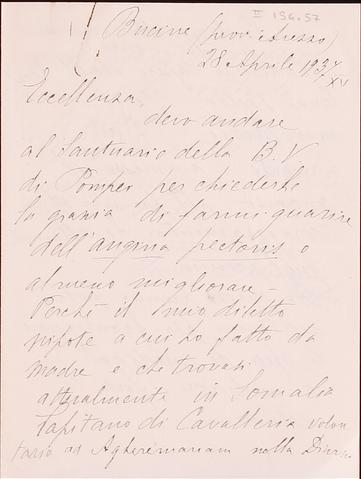 II 156.57
Bucine (prov. Arezzo)
28 Aprile 1937
XV
Eccellenza
devo andare
al Santuario della B. V.
di Pompei per chiederle
la grazia di farmi guarire
dell'angina pectoris o
almeno migliorare –
Perché il mio diletto
nipote a cui ho fatto da
madre e che trovasi
attualmente in Somalia
Capitano di Cavalleria volon
tario ad Agheremariam nella